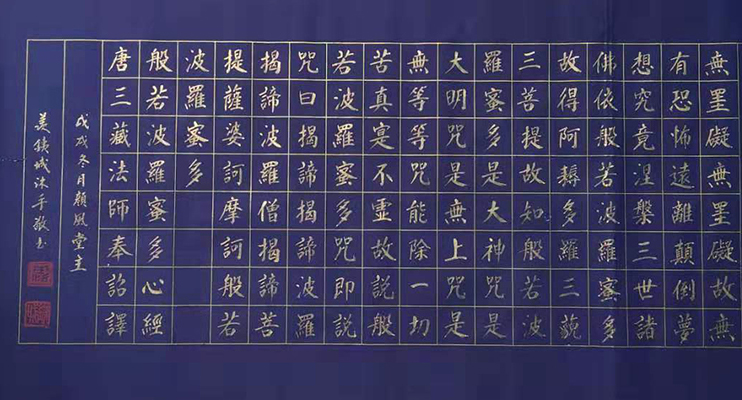 無罣礙無罣礙故無
有恐怖遠離顛倒夢
想究竟涅槃三世諸
佛依般若波羅蜜多
故得阿耨多羅三藐
三菩提故知般若波
羅蜜多是大神咒是
大明咒是無上咒是
無等等咒能除一切
苦真寔不虛故說般
若波羅蜜多咒即說
咒曰揭諦揭諦波羅
揭諦波羅僧揭諦菩
提薩婆訶摩訶般若
波羅蜜多
般若波羅蜜多心經
唐三藏法師奉詔譯
戊戌冬月願風堂主
姜績城沐手敬書